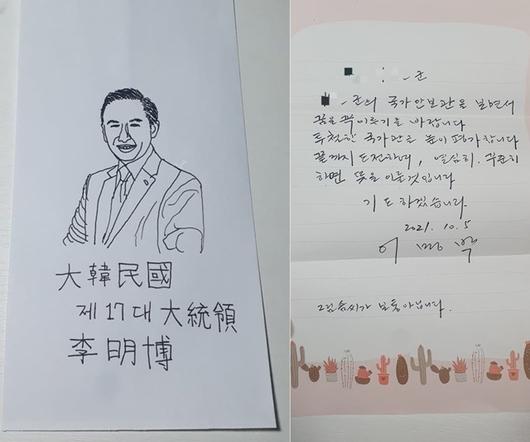 大韓民國
제17대 大統領
李明博
군
군의 국가안보관을 보면서
꿈을 꼭 이루기를 바랍니다
투철한 국가관을 높이 평가합니다
끝까지 도전하며, 열심히. 꾸준히
하면 뜻을 이룰것입니다
기도하겠습니다.
2021. 10. 5
이 명 박
그림솜씨가 보통아닙니다.